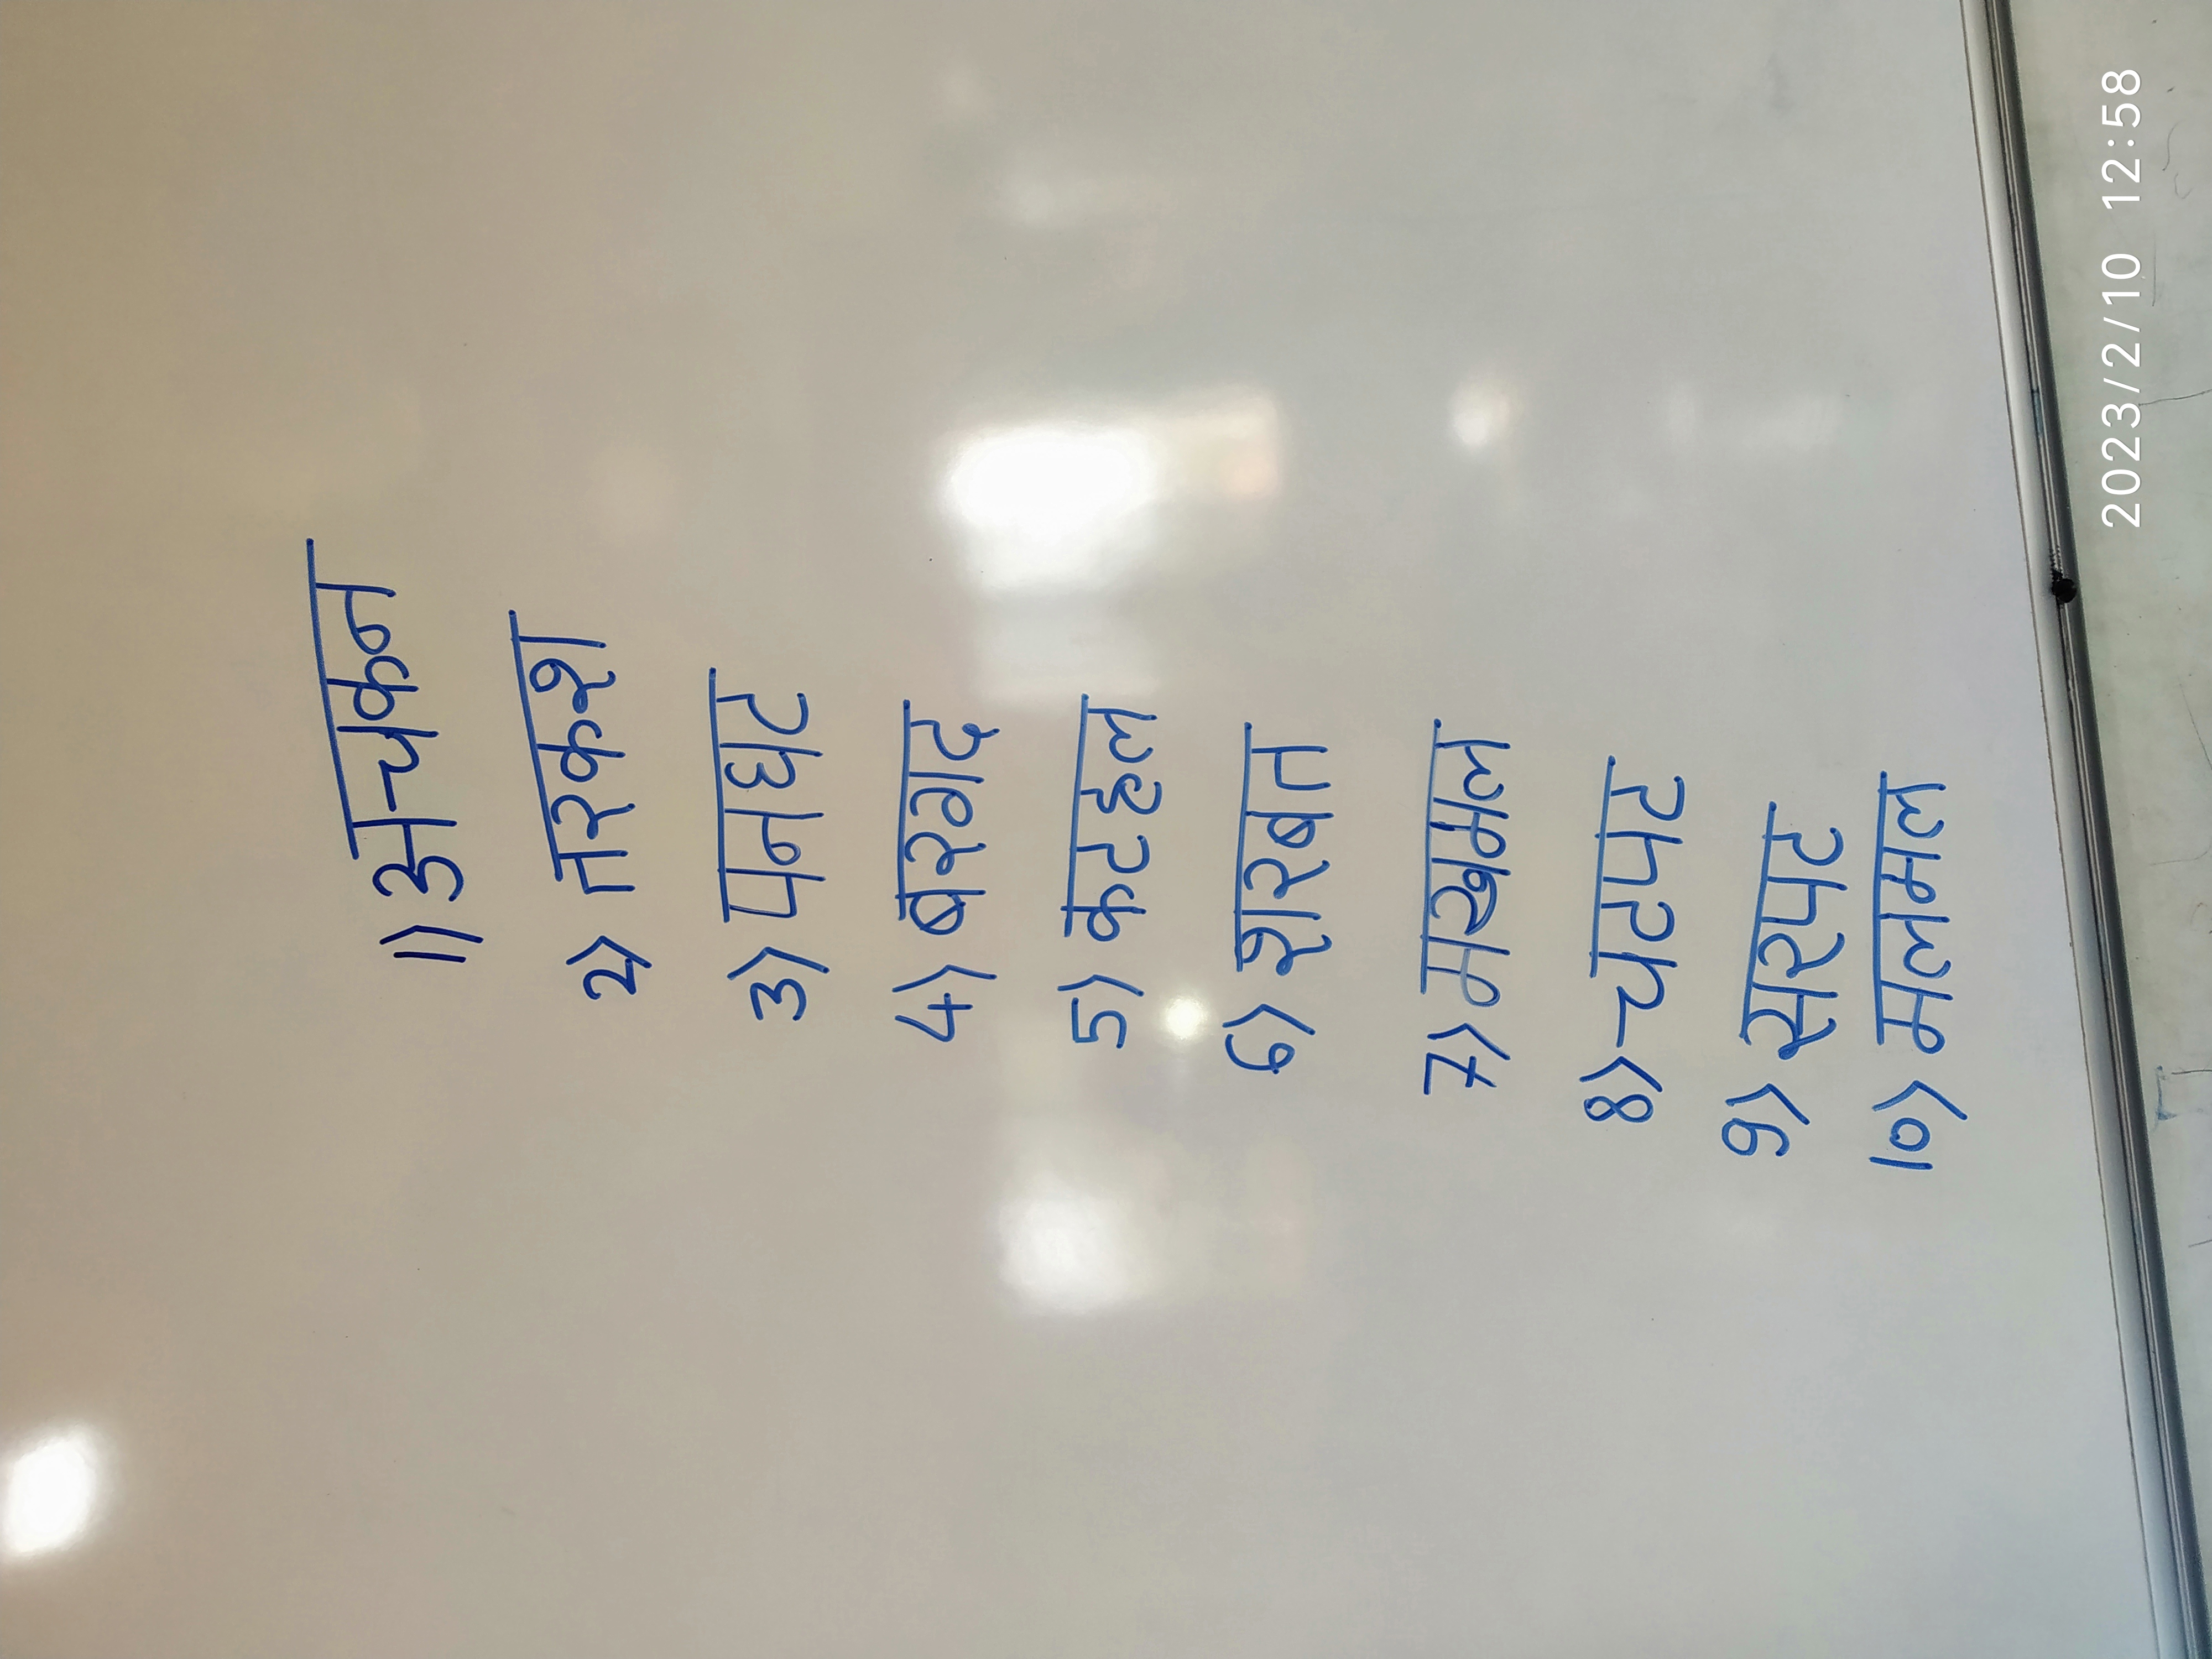 1) अचकन
2) तरकश
3) पनघट
4) बरगद
5) कटहल
6) शरबत
7) मखमल
8) चटपट
9) सरपट
10) मलमल
2023/2/10 12:58